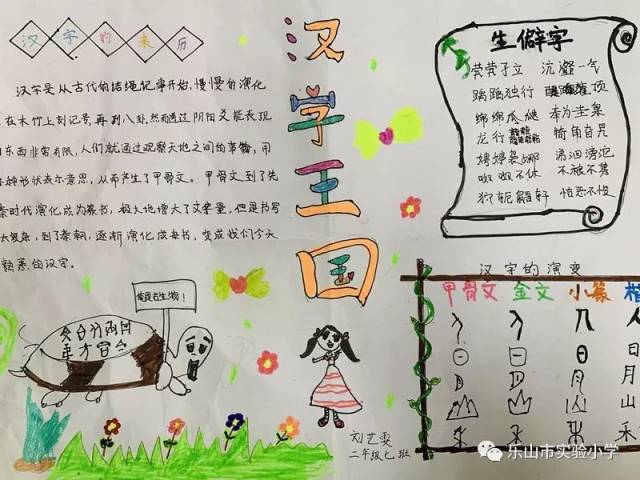 汉字的来历
汉字王国
汉字是从古代的结绳记事开始,慢慢的演化
在木竹上刻记号,再到八卦,然而通过阴阳爻能表现
东西非常有限,人们就通过观察天地之间的事物,用
种形状表示意思,从而产生了甲骨文。甲骨文到了先
秦时代演化成为篆书,极大地增大了文字量,但是书写
太复杂,到了秦朝,逐渐演化成隶书,变成我们今天
熟悉的汉字。
生僻字
茕茕孑立 沆瀣一气
踽踽独行
绵绵瓜瓞 奉为圭臬
龙行龘龘 犄角旮旯
娉婷袅娜 涕泗滂沱
呶呶不休 不稂不莠
我是古生物!
汉字的演变
甲骨文 金文 小篆 楷
人
日
月
山
刘艺雯
二年级七班
乐山市实验小学